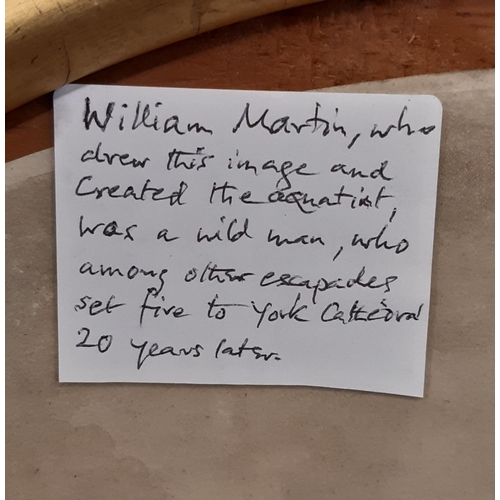 William Martin, who
drew this image and
Created the aquatint,
was a wild man, who
among other escapades
set fire to York Cathedral
20 years later.